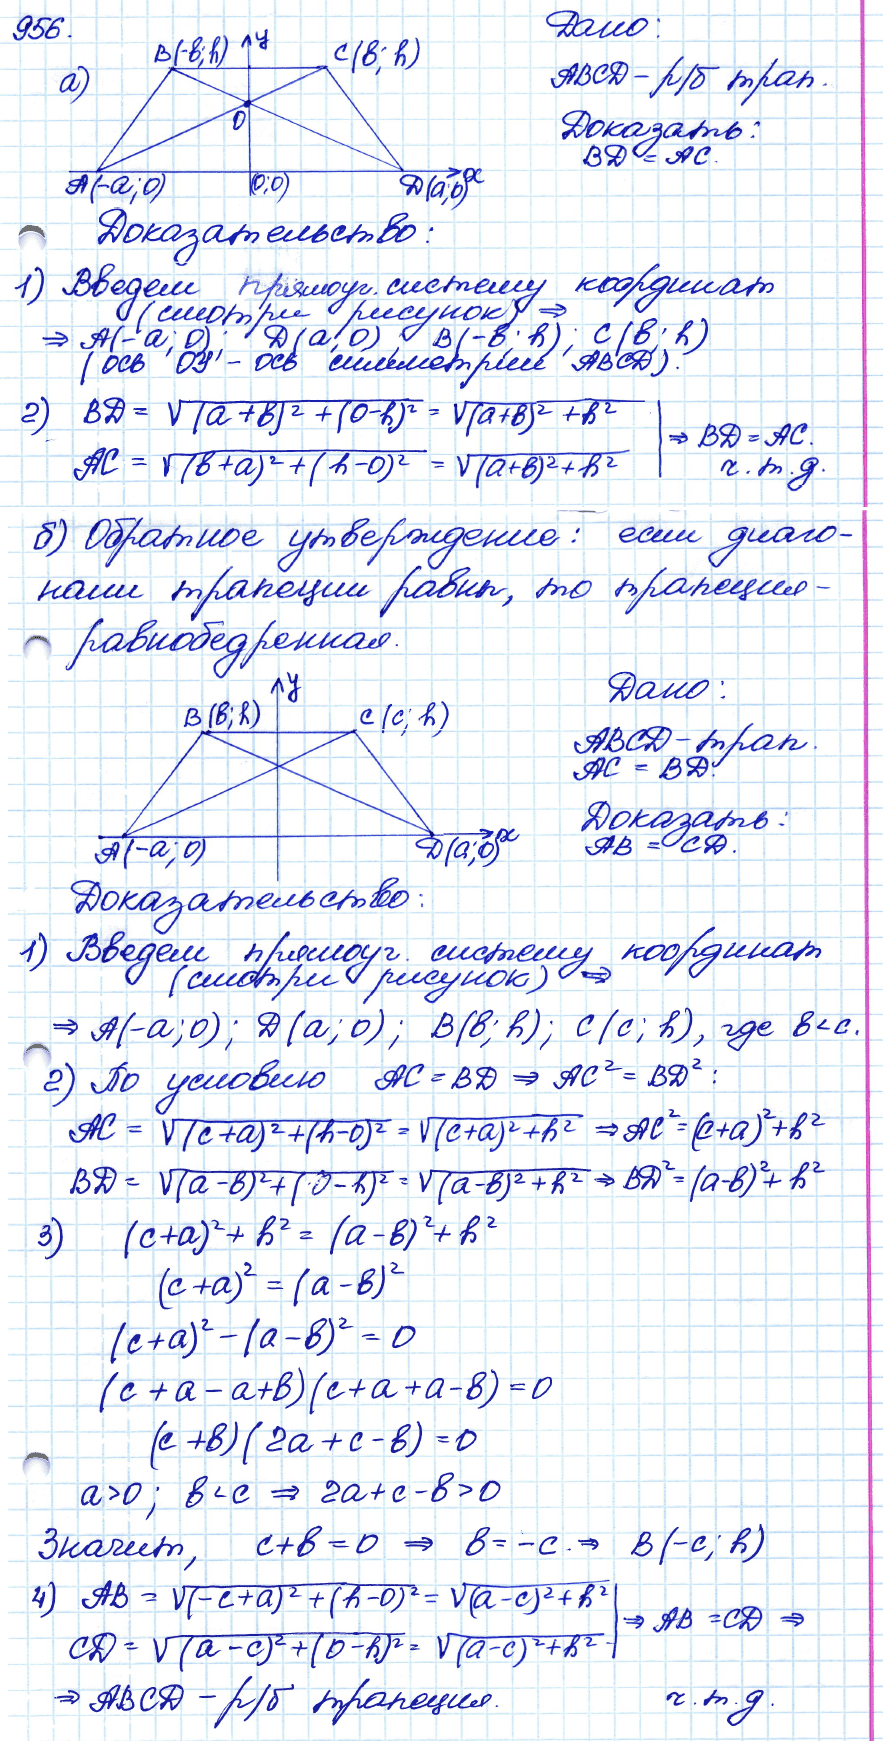 956.
а)
B(-в; h) y C(в; h)
O
A(-a; 0) (0; 0) D(a; 0) x
Дано:
ABCD - р/б трап.
Доказать:
BD = AC.
Доказательство:
1) Введем прямоуг. систему координат
(смотри рисунок) ⇒
⇒ A(-a; 0); D(a; 0); B(-в; h); C(в; h)
(ось OY - ось симметрии ABCD).
2) BD = √((a+в)² + (0-h)²) = √((a+в)² + h²)
AC = √((в+a)² + (h-0)²) = √((a+в)² + h²)
⇒ BD = AC.
ч.т.д.
б) Обратное утверждение: если диаго-
нали трапеции равны, то трапеция -
равнобедренная.
y
B(в; h) C(c; h)
A(-a; 0) D(a; 0) x
Дано:
ABCD - трап.
AC = BD.
Доказать:
AB = CD.
Доказательство:
1) Введем прямоуг. систему координат
(смотри рисунок) ⇒
⇒ A(-a; 0); D(a; 0); B(в; h); C(c; h), где в < c.
2) По условию AC = BD ⇒ AC² = BD²:
AC = √((c+a)² + (h-0)²) = √((c+a)² + h²) ⇒ AC² = (c+a)² + h²
BD = √((a-в)² + (0-h)²) = √((a-в)² + h²) ⇒ BD² = (a-в)² + h²
3) (c+a)² + h² = (a-в)² + h²
(c+a)² = (a-в)²
(c+a)² - (a-в)² = 0
(c + a - a + в)(c + a + a - в) = 0
(c + в)(2a + c - в) = 0
a > 0; в < c ⇒ 2a + c - в > 0
Значит, c + в = 0 ⇒ в = -c. ⇒ B(-c; h)
4) AB = √((-c+a)² + (h-0)²) = √((a-c)² + h²)
CD = √((a-c)² + (0-h)²) = √((a-c)² + h²)
⇒ AB = CD ⇒
⇒ ABCD - р/б трапеция. ч.т.д.